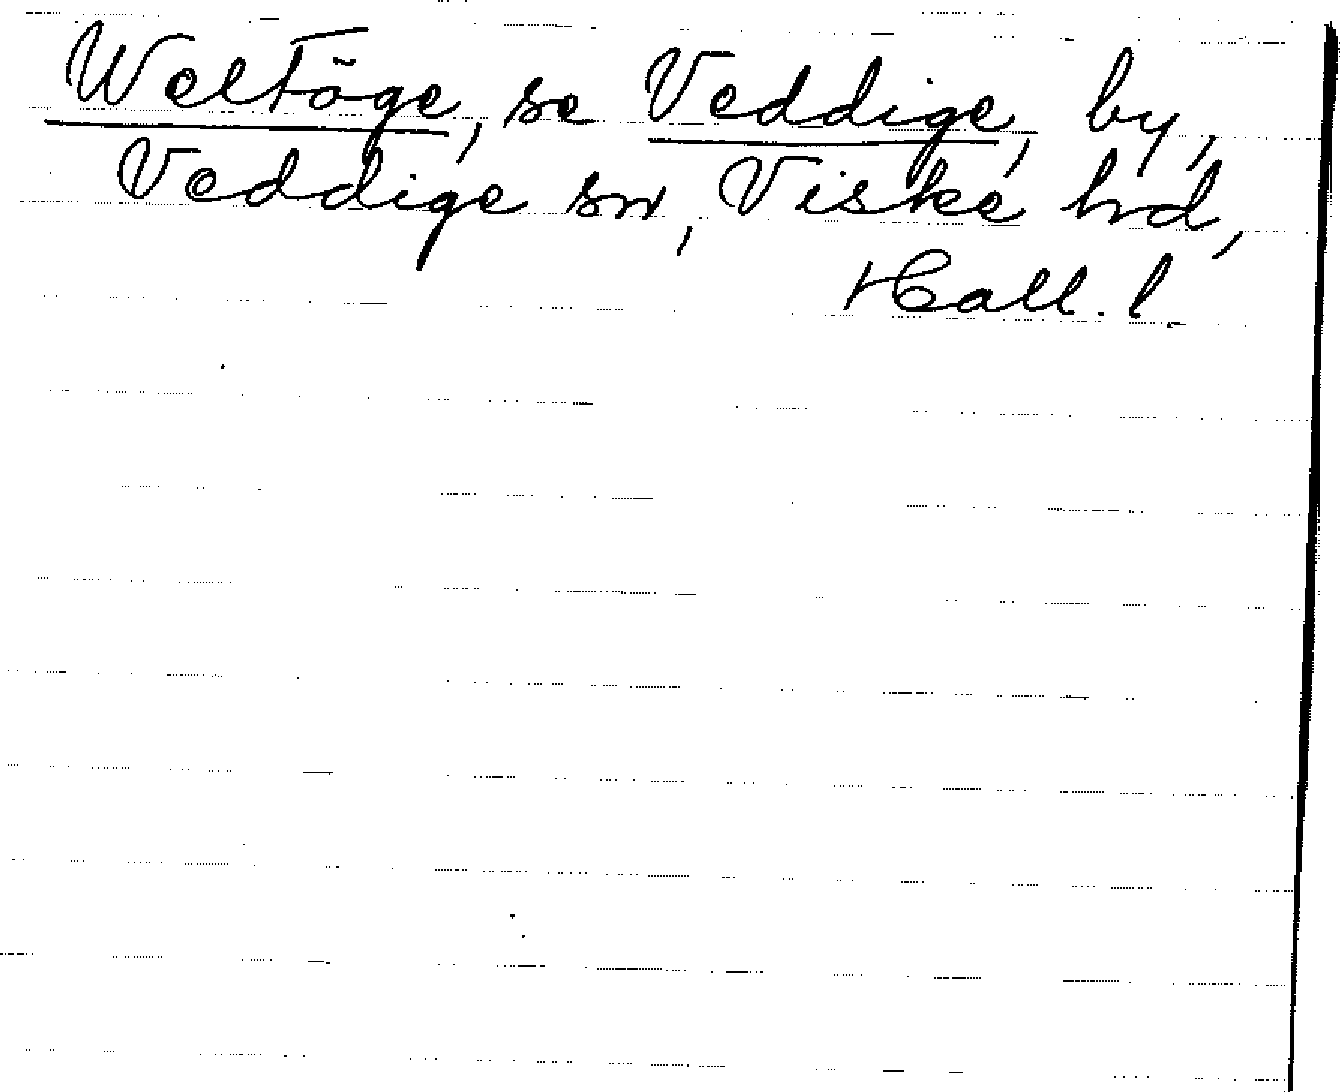 Weltöge, se Veddige, by,
Veddige sn, Viske hd,
Hall. l.